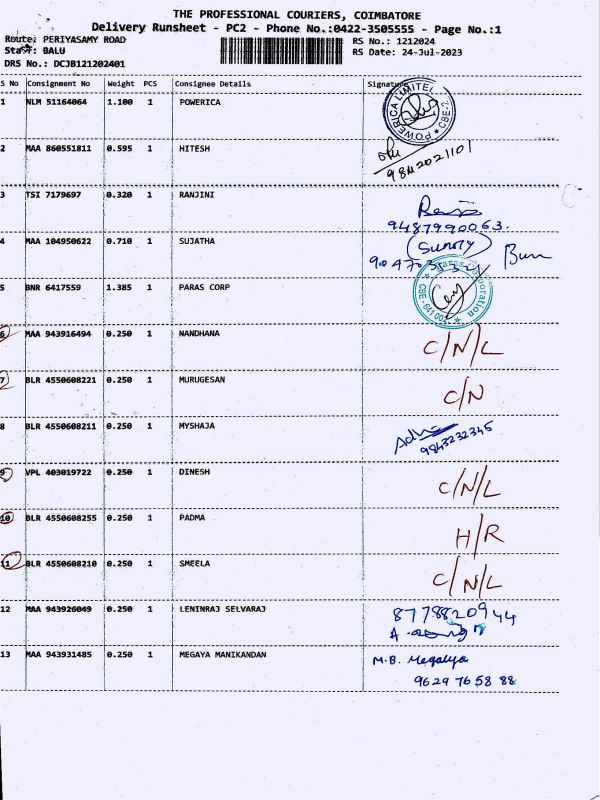 THE PROFESSIONAL COURIERS, COIMBATORE
Delivery Runsheet - PC2 - Phone No.:0422-3505555 - Page No.:1
Route: PERIYASAMY ROAD
RS No.: 1212024
Staff: BALU
RS Date: 24-Jul-2023
DRS No.: DCJB121202401
S No Consignment No Weight PCS Consignee Details Signature
1 NLM 51164064 1.100 1 POWERICA
POWERICA LIMITED CBE-2
2 MAA 860551811 0.595 1 HITESH
3 TSI 7179697 0.320 1 RANJINI
9487990063.
4 MAA 104950622 0.710 1 SUJATHA
5 BNR 6417559 1.385 1 PARAS CORP
6 MAA 943916494 0.250 1 NANDHANA C/N/L
7 BLR 4550608221 0.250 1 MURUGESAN C/N
8 BLR 4550608211 0.250 1 MYSHAJA
9843232345
9 VPL 403019722 0.250 1 DINESH C/N/L
10 BLR 4550608255 0.250 1 PADMA H/R
11 BLR 4550608210 0.250 1 SMEELA C/N/L
12 MAA 943926049 0.250 1 LENINRAJ SELVARAJ 8778820944
13 MAA 943931485 0.250 1 MEGAYA MANIKANDAN M.B. Megalya
9629 76 58 88